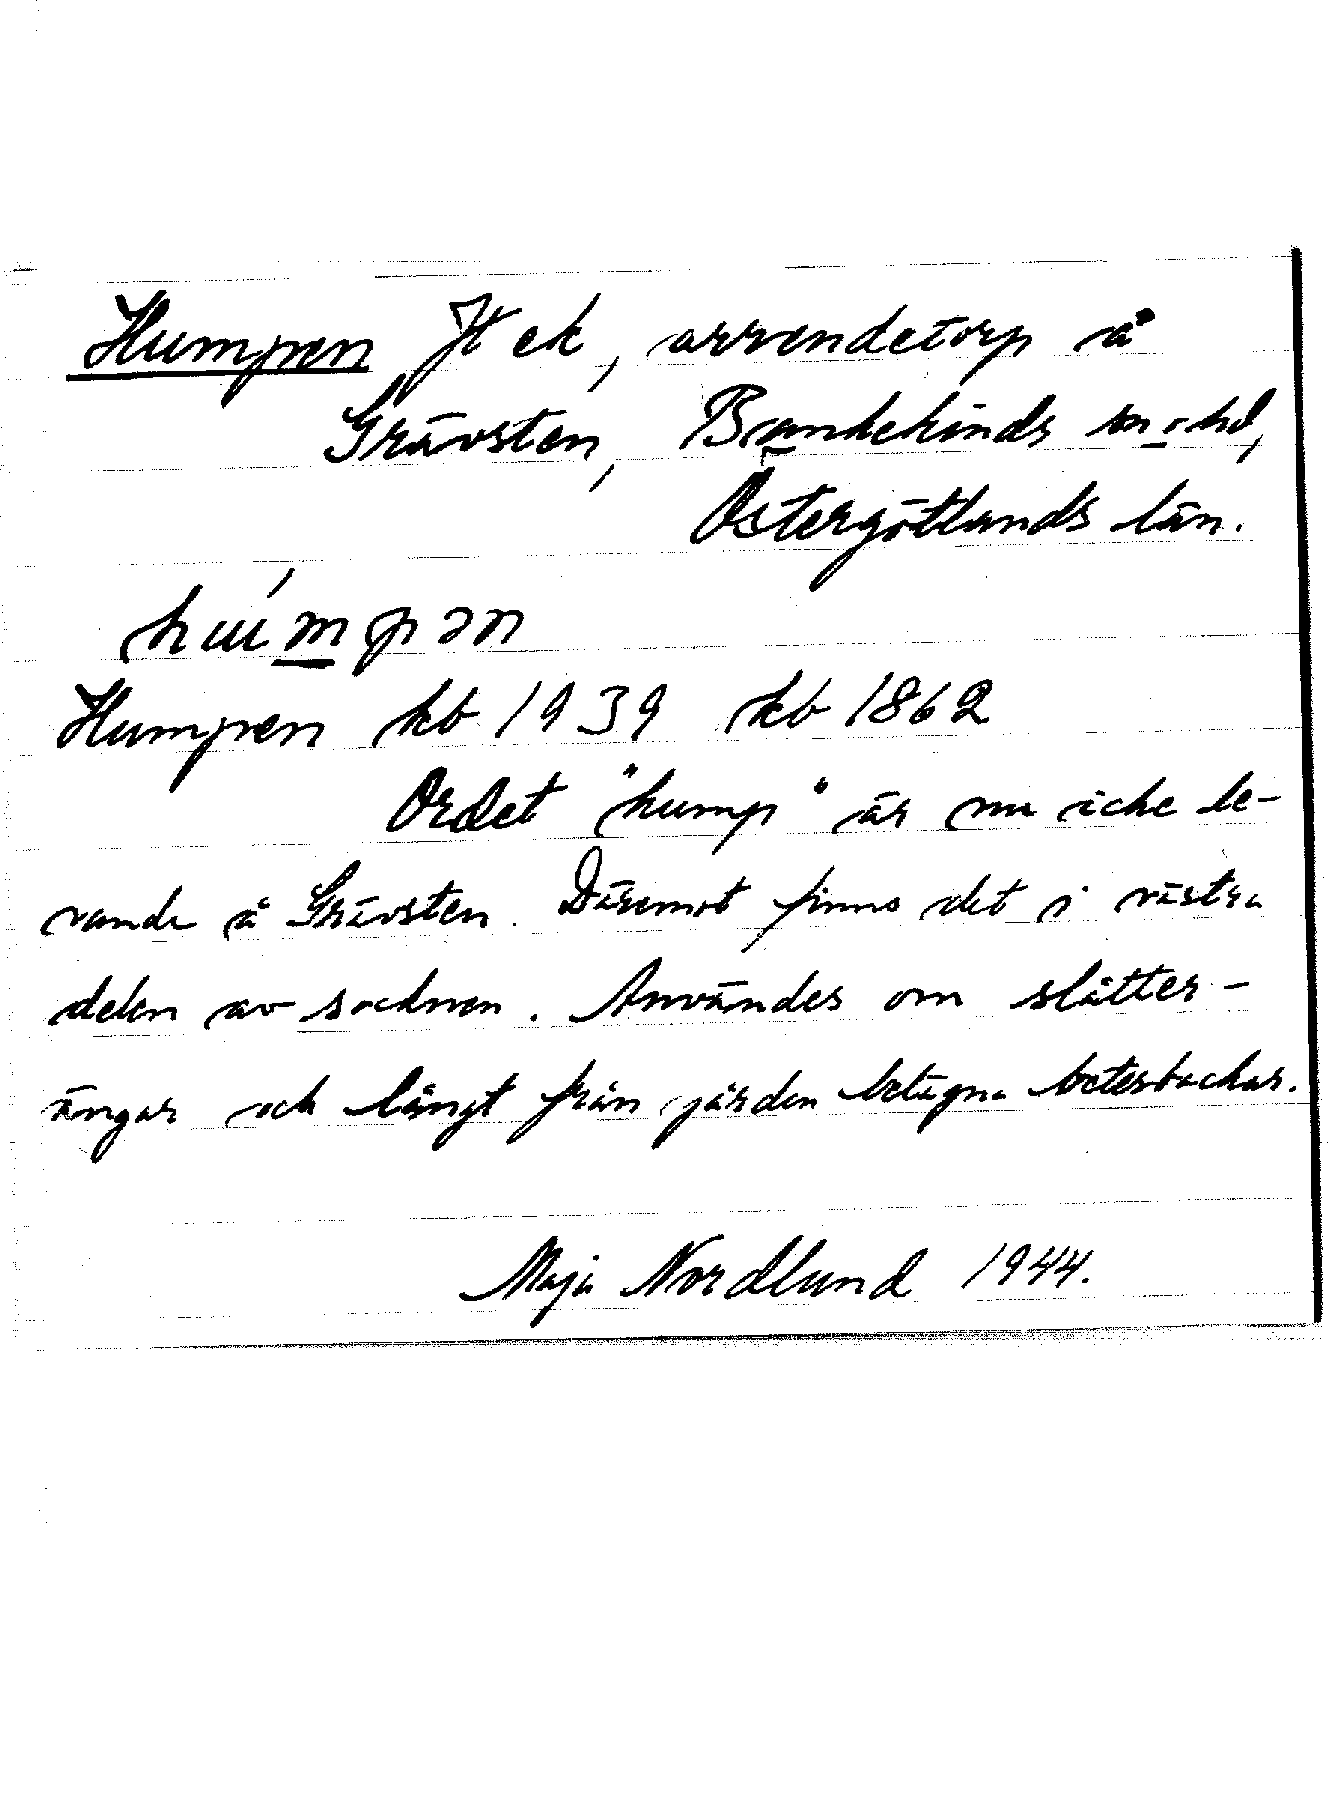 Humpen Jt ek, arrendetorp å
Grävsten, Bankekinds sn o hd,
Östergötlands län.
húmpən
Humpen kb 1939 kb 1862
Ordet "hump" är nu icke le-
vande å Grävsten. Däremot finns det i västra
delen av socknen. Användes om slåtter-
ängar och långt från gården belägna betesbackar.
Maja Nordlund 1944.